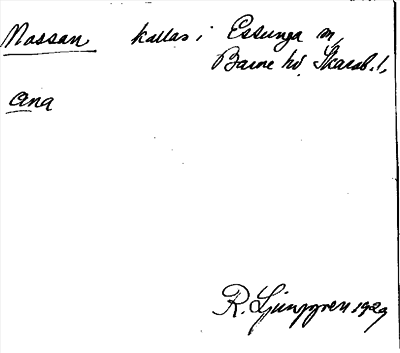 Nossan kallas i Essunga sn,
Barne hd, Skarab. l.
Ana
R. Ljunggren 1929